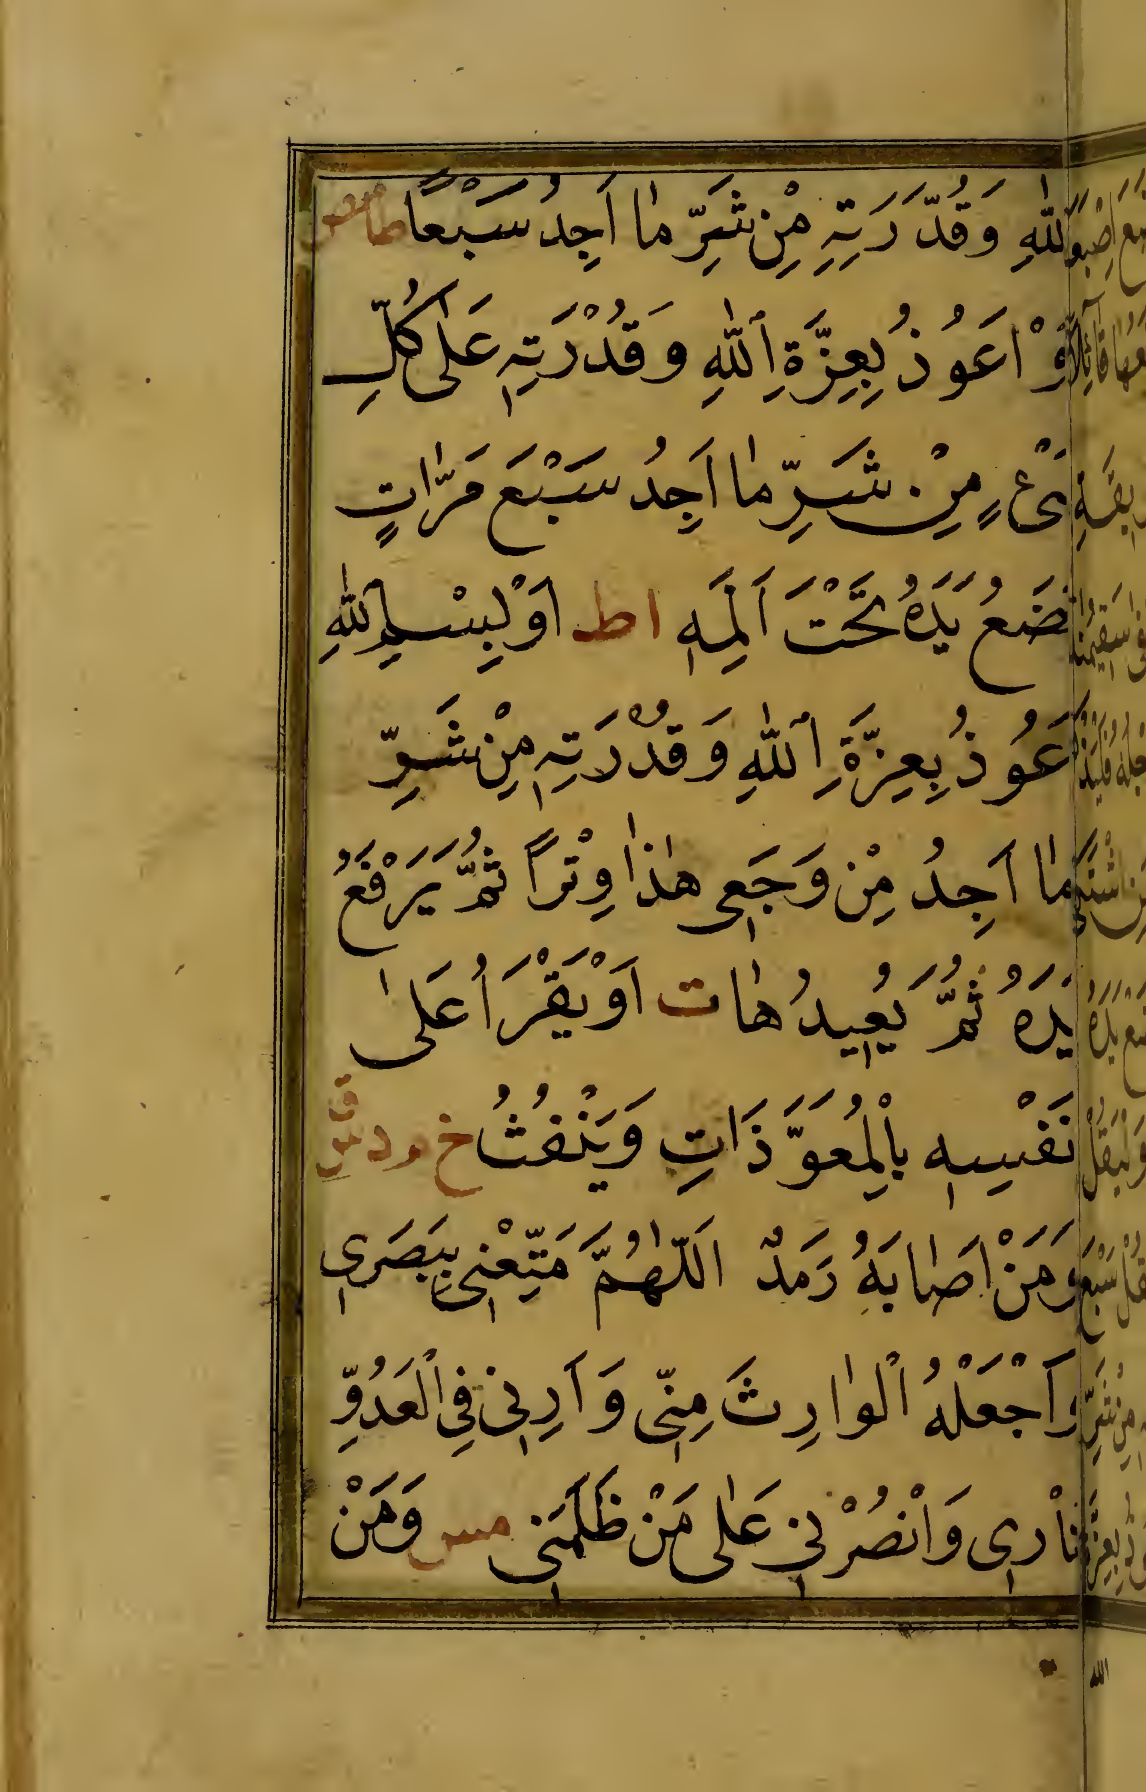 اللهِ وَقُدّرَتِهِ مِنْ شَرِّ مٰا اَجِدُ سَبْعاً طا مص
اَوْ اَعُوذُ بِعِزَّةِ اللّٰهِ وَقُدْرَتِهِ عَلٰى كُلِّ
شَىْءٍ مِنْ شَرِّ مٰا اَجِدُ سَبْعَ مَرّٰاتٍ
يَضَعُ يَدَهُ تَحْتَ اَلَمِهِ اط اَوْ لِبِسْمِ اللّٰهِ
اَعُوذُ بِعِزَّةِ اللّٰهِ وَقُدْرَتِهِ مِنْ شَرِّ
مٰا اَجِدُ مِنْ وَجَعِى هٰذٰا وِتْراً ثُمَّ يَرْفَعُ
يَدَهُ ثُمَّ يُعِيدُهٰا ت اَوْ يَقْرَأُ عَلىٰ
نَفْسِهِ بِالْمُعَوَّذَاتِ وَيَنْفُثُ خ م د س ق
وَمَنْ اَصٰابَهُ رَمَدٌ اَللّٰهُمَّ مَتِّعْنِى بِبَصَرِى
وَاَجْعَلْهُ الْوٰارِثَ مِنِّى وَاَرِنِى فِى الْعَدُوِّ
ثاْرِى وَانْصُرْنِى عَلٰى مَنْ ظَلَمَنِى مس وَمَنْ